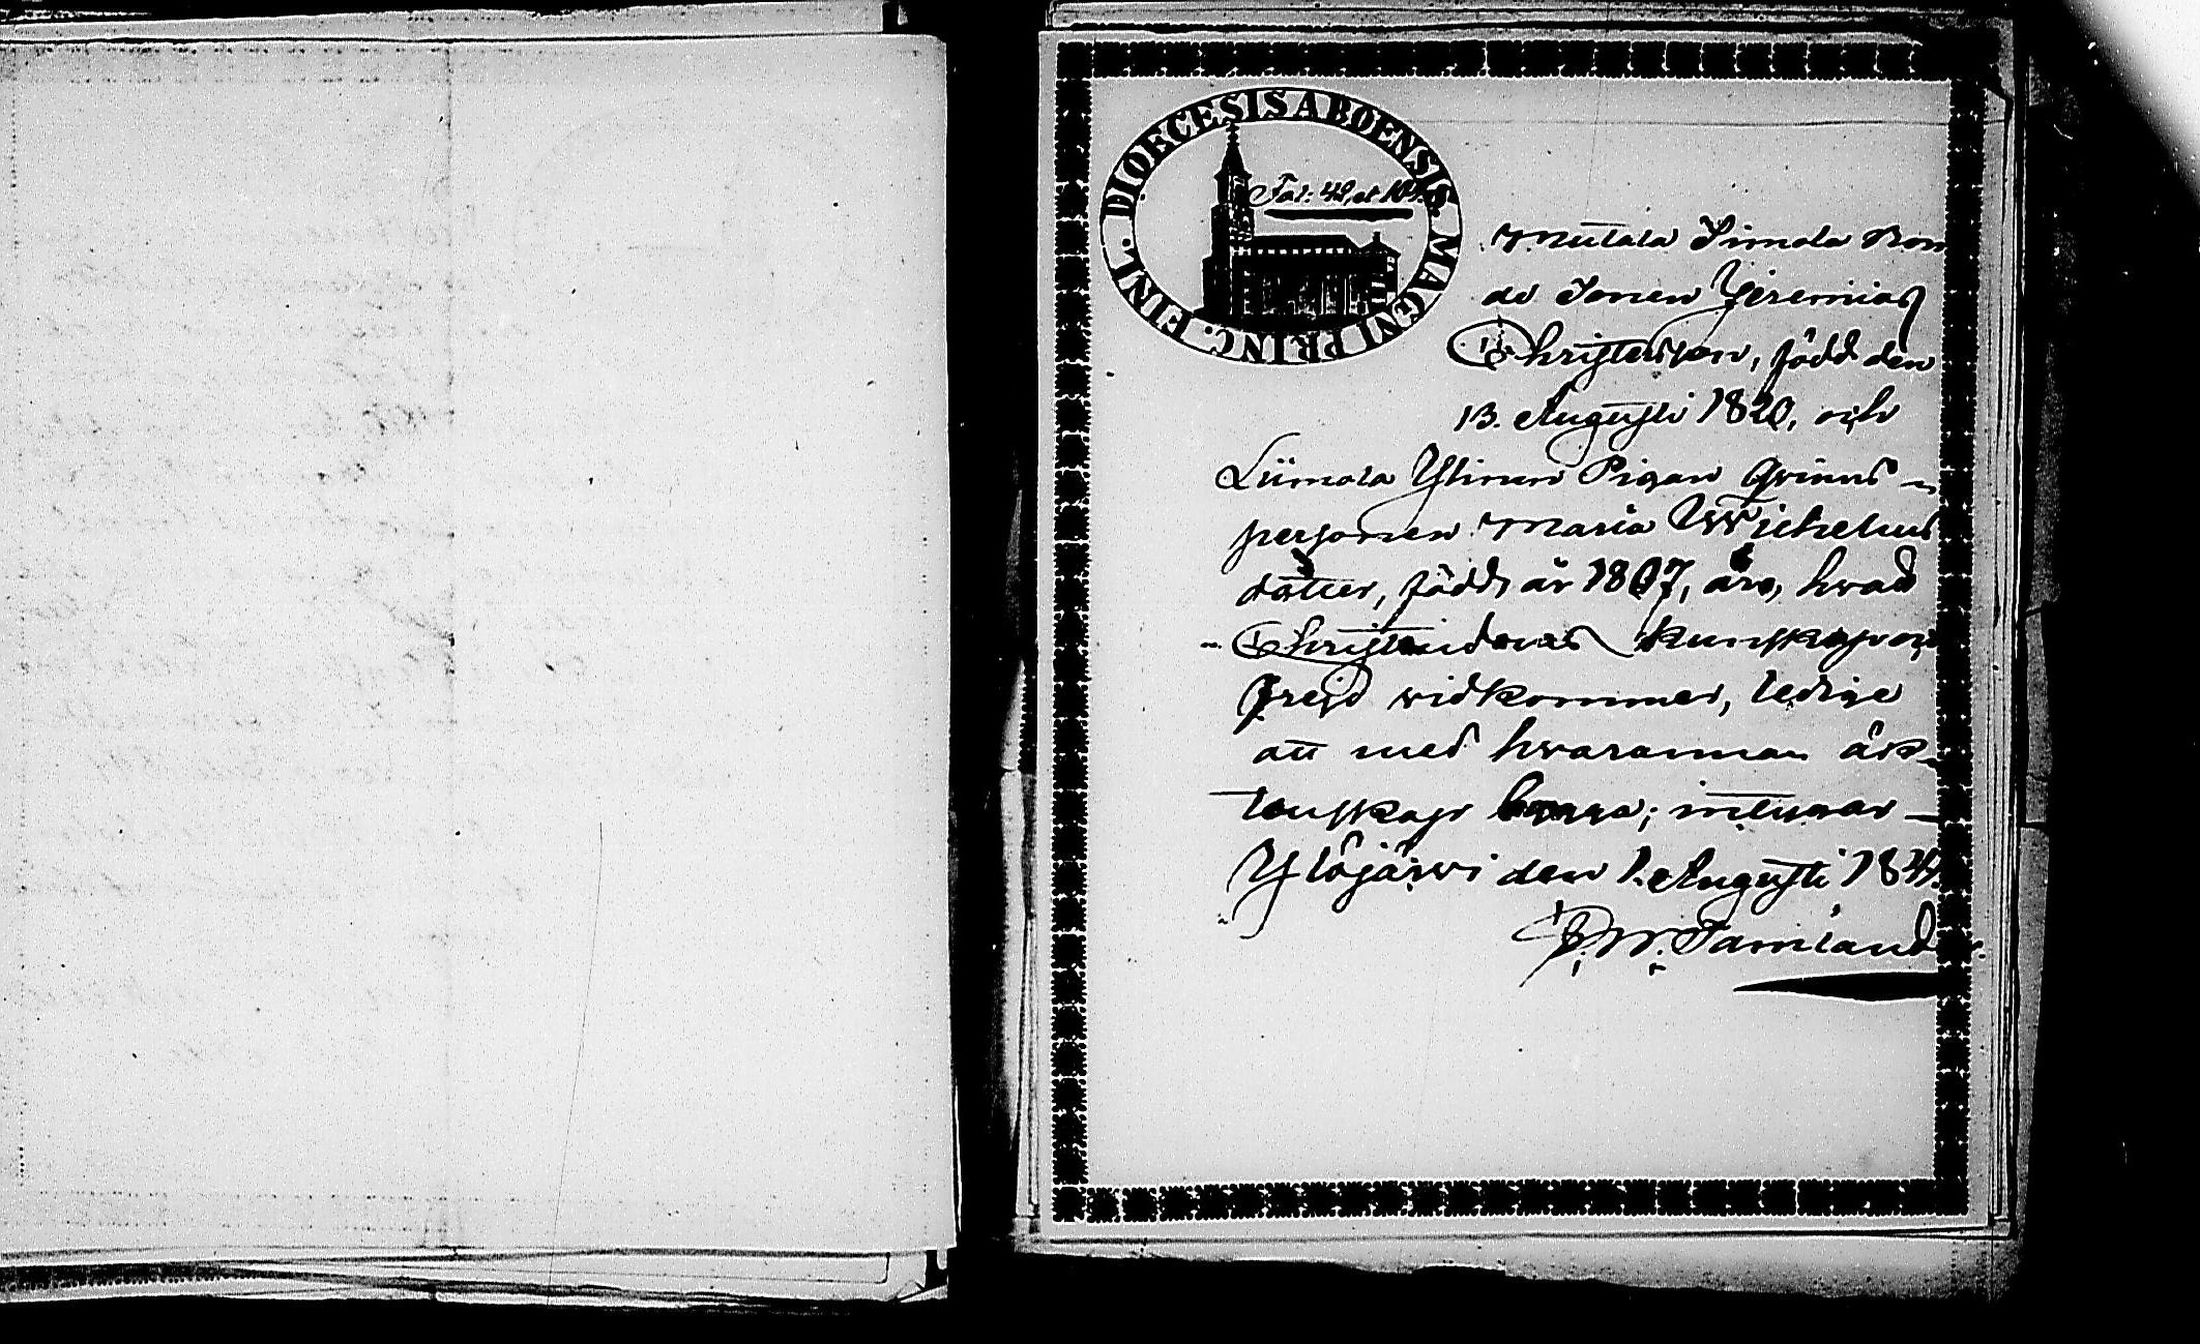 DIOECESIS ABOENSIS. MAGNI PRINC. FINL.
Fol: 42, et 104.
Mutala Simola Bon
de Sonen Jeremias
Christersson, född den
13. Augusti 1820, och
Liimola Ylinen Pigan Qvinns-
personen Maria Michels
dotter, född år 1807, äro, hvad
Christendoms kunskap och
Frejd widkommer, ledige
att med hvarannan äck-
tenskap bygga; intygar
Ylöjärwi den 1. Augusti 184
W. Tamlander.